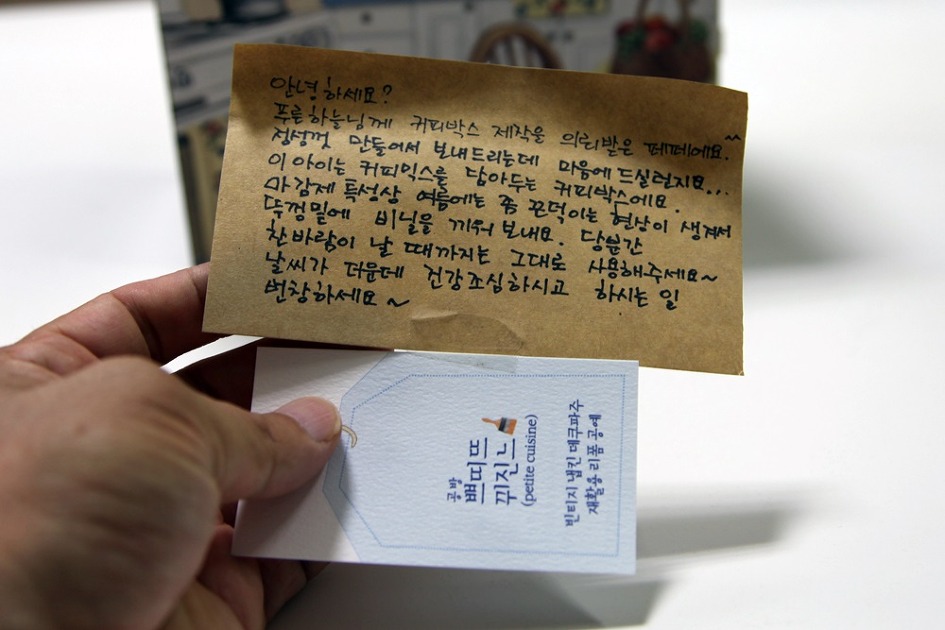 안녕하세요?
푸른하늘님께 커피박스 제작을 의뢰받은 페페에요.^^
정성껏 만들어서 보내드리는데 마음에 드실런지요...
이 아이는 커피믹스를 담아두는 커피박스에요.
마감제 특성상 여름에는 좀 끈덕이는 현상이 생겨서
뚜껑밑에 비닐을 끼워 보내요. 당분간
찬바람이 날 때까지는 그대로 사용해주세요~
날씨가 더운데 건강조심하시고 하시는 일
번창하세요~
공방
쁘띠뜨
뀌진느
(petite cuisine)
빈티지 냅킨 데쿠파주
재활용 리폼 공예